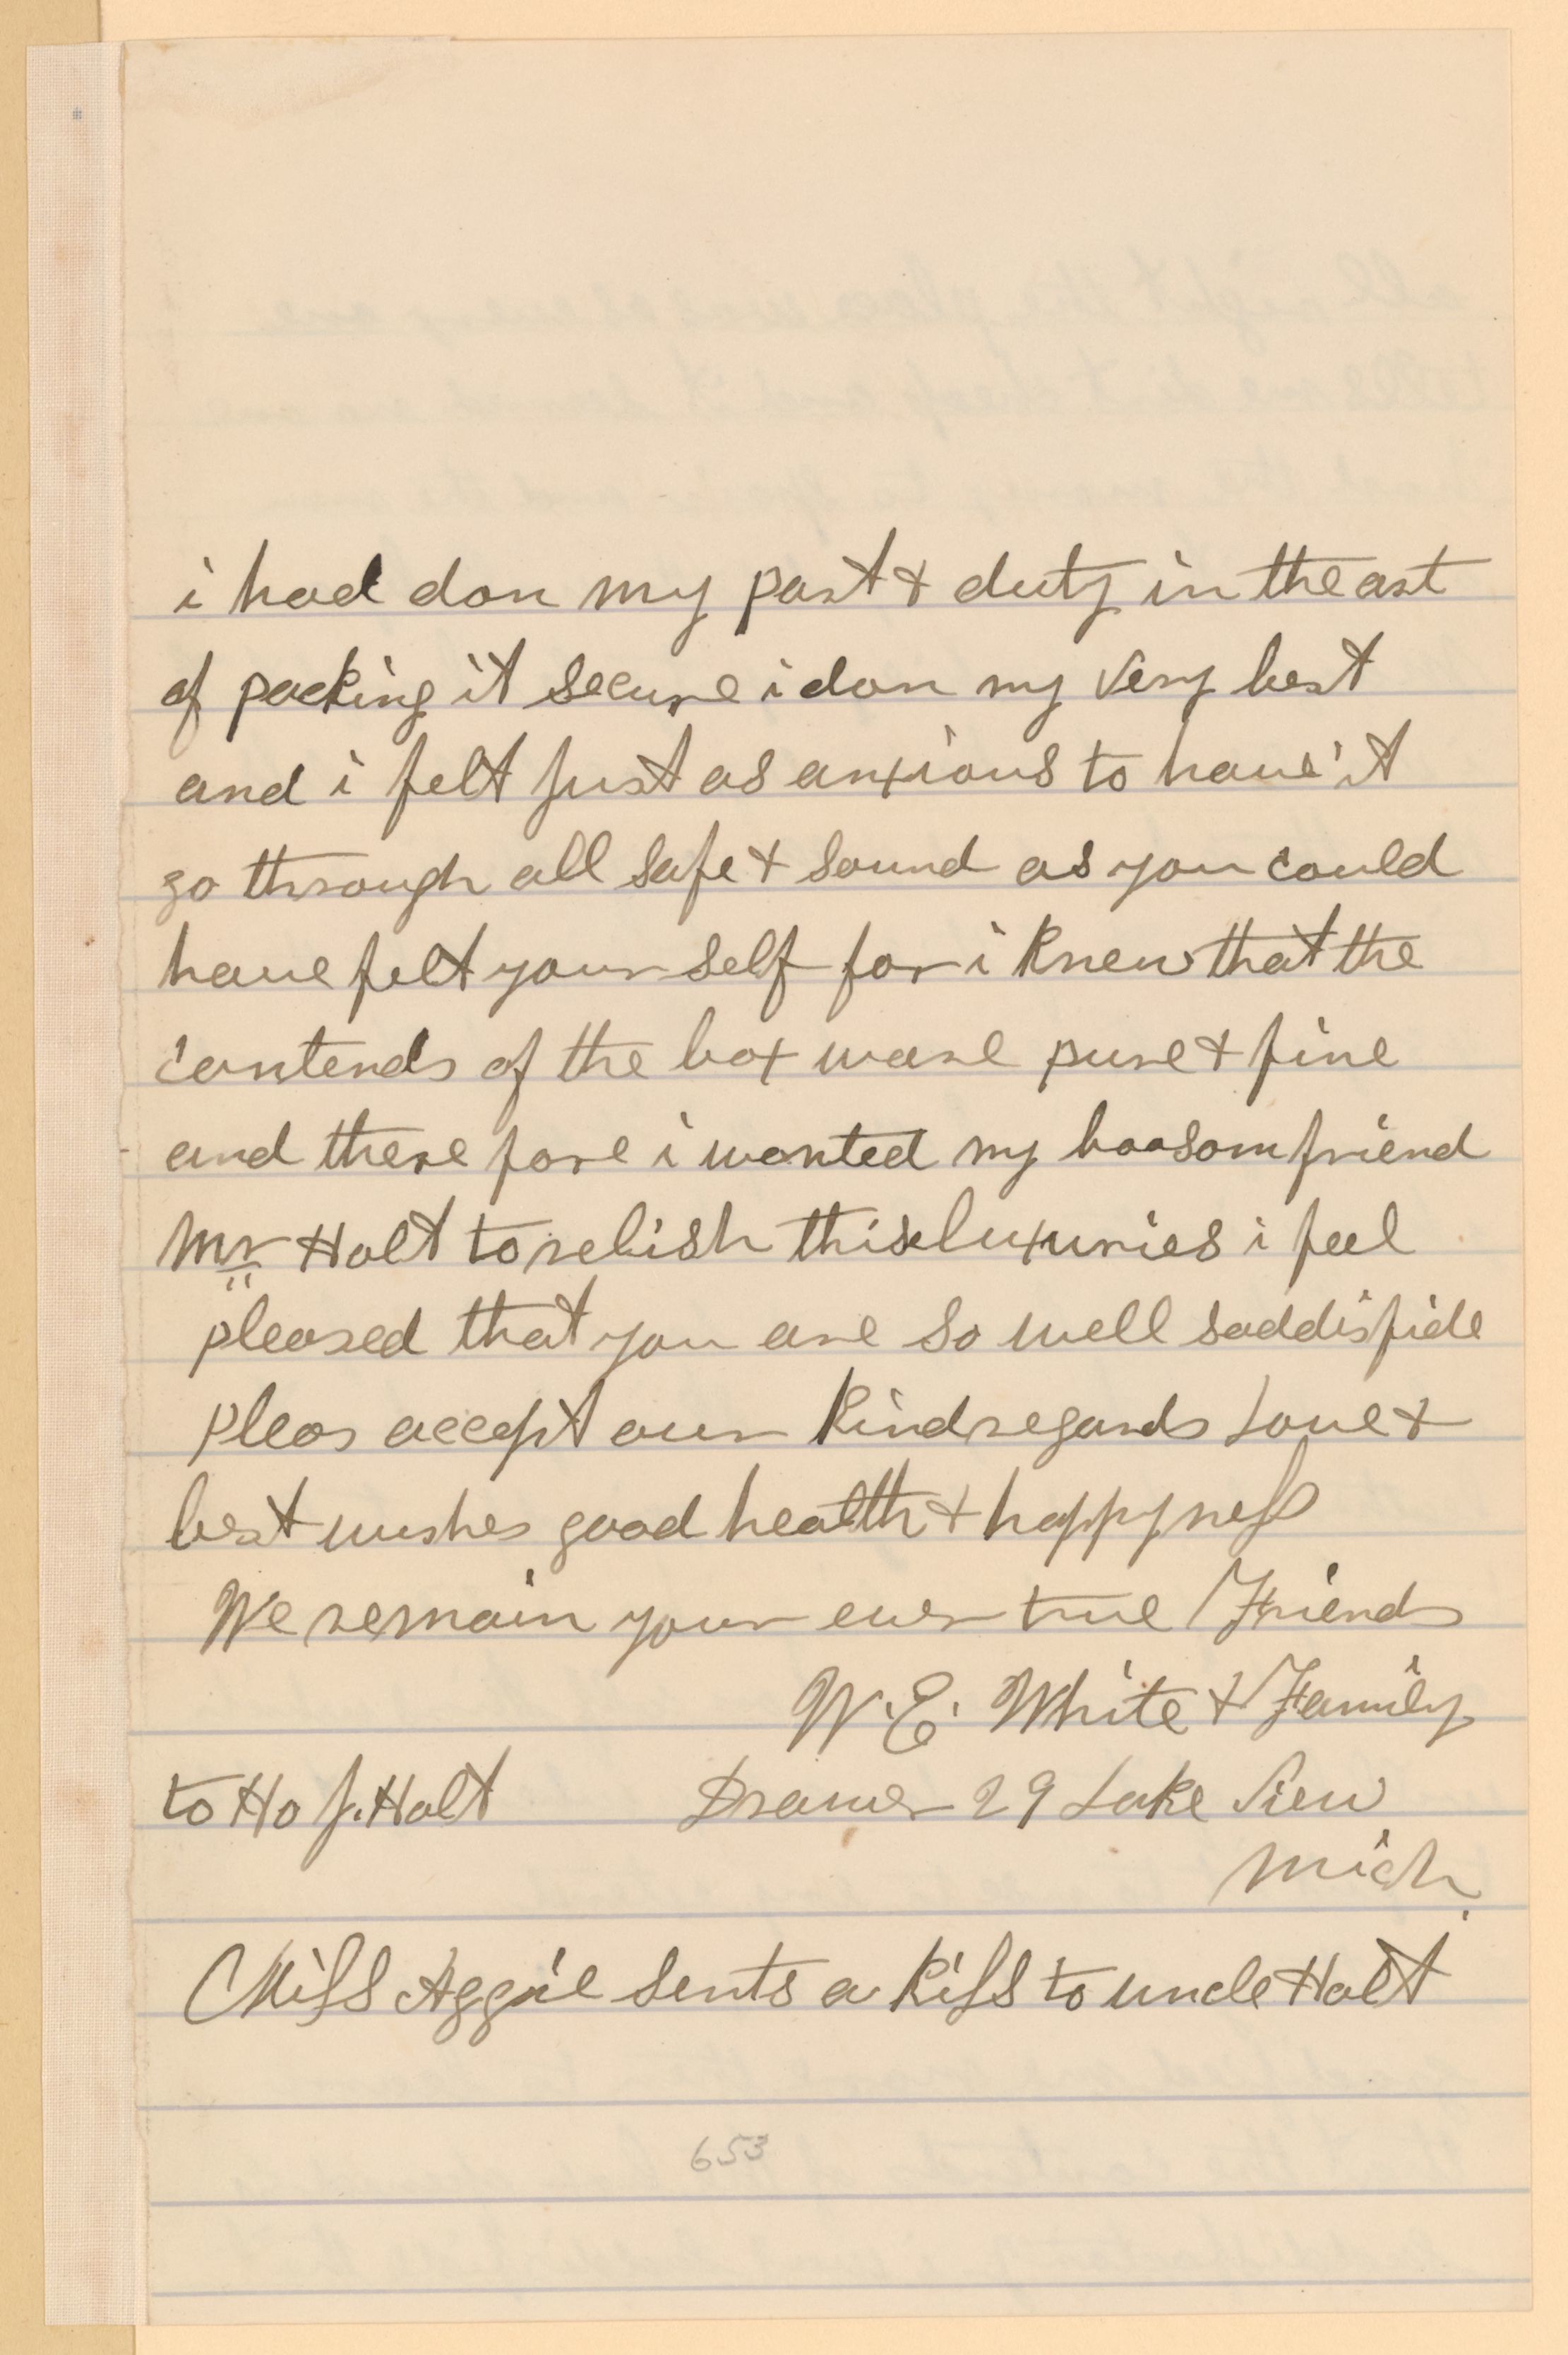 i had don my part & duty in the art
of packing it secure i don my very best
and i felt just as anxious to have it
go through all safe & sound as you could
have felt your self for i knew that the
contends of the box ware pure & fine
and there fore i wanted my boosom friend
Mr Holt to relish this luxuries i feel
pleased that you are so well saddisfide
pleas accept our kind regards Love &
best wishes good health & happyness
We remain your ever true Friends
W. E. White & Family
to Ho J. Holt Drawer 29 Lake View
Mich.
Miss Aggie sents a kiss to uncle Holt
653